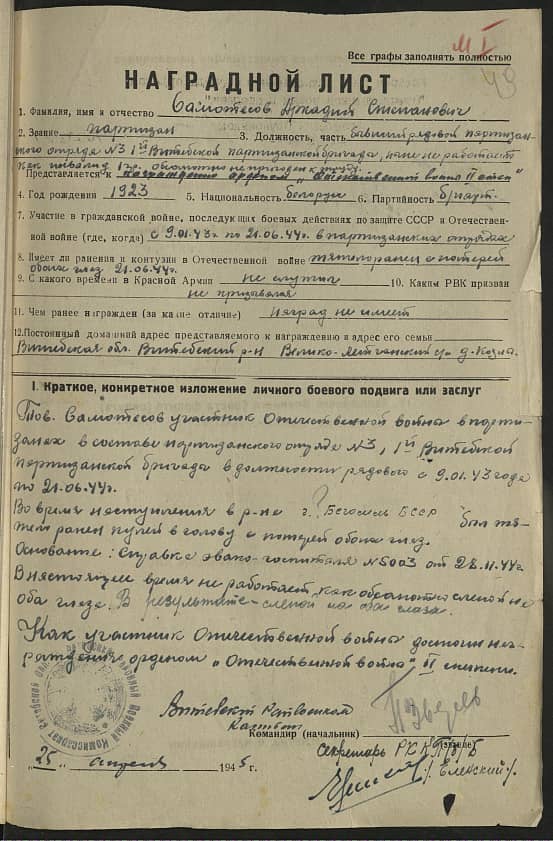 М I
49
Все графы заполнять полностью
НАГРАДНОЙ ЛИСТ
1. Фамилия, имя и отчество Самотесов Аркадий Степанович
2. Звание партизан 3. Должность, часть бывший рядовой партизан-
ского отряда №3 1ой Витебской партизанской бригады, ныне не работает
как инвалид 1 гр.
Представляется к награждению орденом „Отечественной война II степ"
4. Год рождения 1923 5. Национальность белорус 6. Партийность
7. Участие в гражданской войне, последующих боевых действиях по защите СССР и Отечествен-
ной войне (где, когда) с 9.01.43г по 21.06.44г. в партизанских отрядах
8. Имеет ли ранения и контузии в Отечественной войне тяжело ранен с потерей
обоих глаз 21.06.44г.
9. С какого времени в Красной Армии не служил 10. Каким РВК призван
не призывался
11. Чем ранее награжден (за какие отличие) наград не имеет
12. Постоянный домашний адрес представляемого к награждению и адрес его семьи
Витебская обл. Витебский р-н д.
I. Краткое, конкретное изложение личного боевого подвига или заслуг
Тов. Самотесов участник Отечественной война в парти-
занах в составе партизанского отряда №3, 1ой Витебской
партизанской бригада в должности рядового с 9.01.43 года
по 21.06.44г.
Во время наступления в р-не г. ? Бегомль БССР был тя-
жел ранен пулей в голову с потерей обоих глаз.
Основание: Справка эвако-госпиталя №5003 от 28.11.44г.
В настоящее время не работает, как слепой на
оба глаза. В результате - слепой на оба глаза.
Как участник Отечественной война достоин наг-
раждения орденом „Отечественной война" II степени.
Витебский Райвоенком
Командир (начальник)
Секретарь РК КП(б)Б
Еленский
„25" апреля 1945 г.